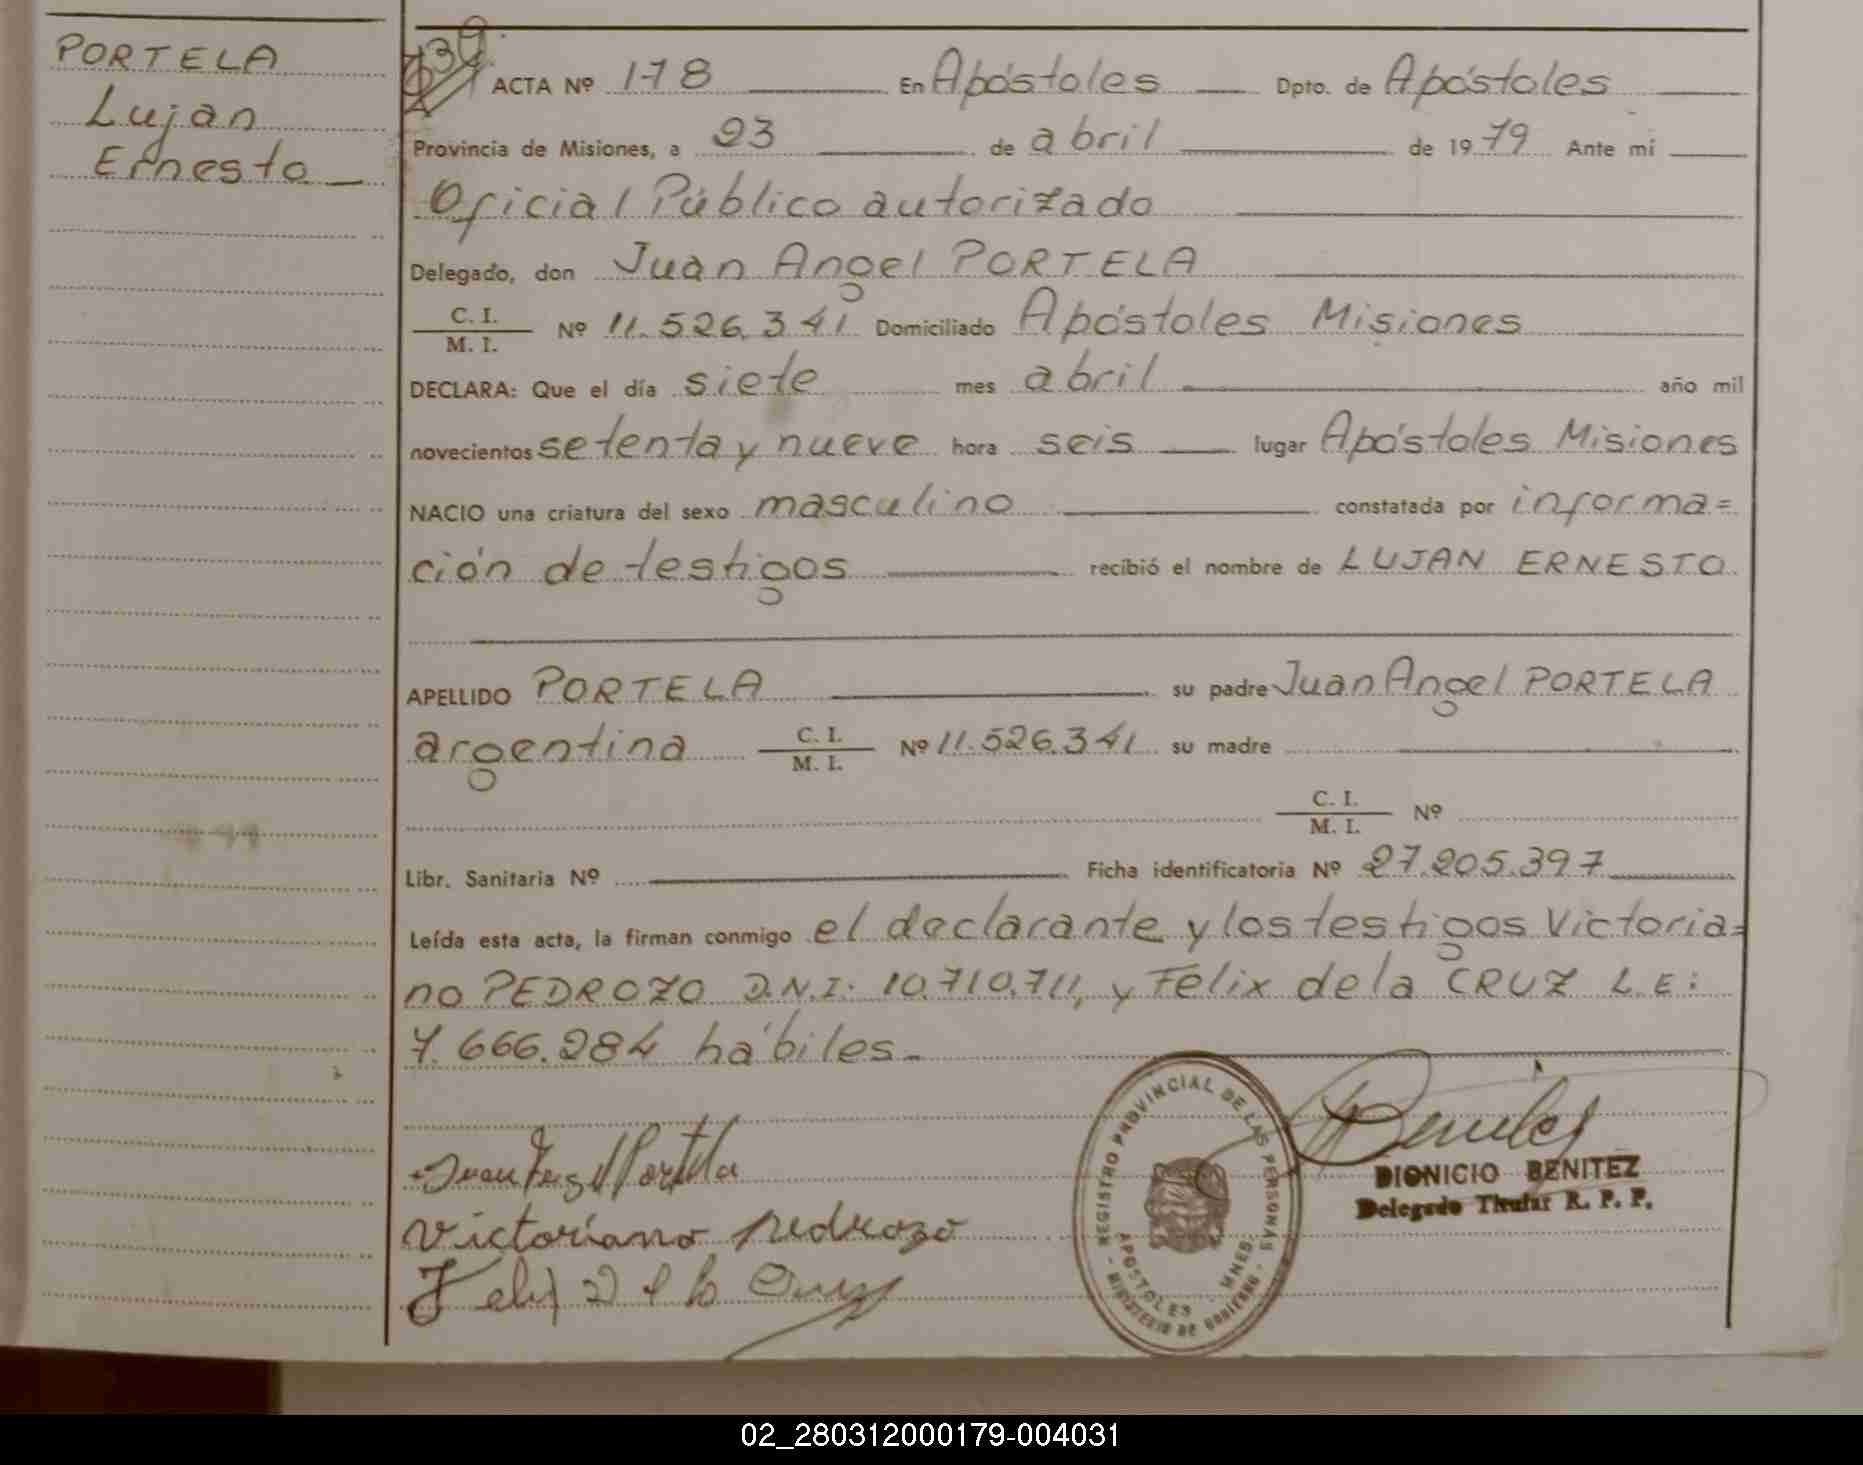 PORTELA
Lujan
Ernesto
139
ACTA Nº 178 En Apóstoles Dpto. de Apóstoles
Provincia de Misiones, a 23 de abril de 1979 Ante mí
Oficial Público autorizado
Delegado, don Juan Angel PORTELA
C. I.
M. I. Nº 11.526.341 Domiciliado Apóstoles Misiones
DECLARA: Que el día siete mes abril año mil
novecientos setenta y nueve hora seis lugar Apóstoles Misiones
NACIO una criatura del sexo masculino constatada por informa=
ción de testigos recibió el nombre de LUJAN ERNESTO
APELLIDO PORTELA su padre Juan Angel PORTELA
argentina C. I.
M. I. Nº 11.526.341 su madre
C. I.
M. I. Nº
Libr. Sanitaria Nº Ficha identificatoria Nº 27.205.397
Leída esta acta, la firman conmigo el declarante y los testigos Victoria=
no PEDROZO D.N.I: 10.710.711, y Félix de la CRUZ L.E:
7.666.284 hábiles.
Juan Angel Portela
Victoriano pedrozo
Felix D e la Cruz
REGISTRO PROVINCIAL DE LAS PERSONAS
APOSTOLES - MNES.
MINISTERIO DE GOBIERNO
Benitez
DIONICIO BENITEZ
Delegado Titular R. P. P.
02_280312000179-004031